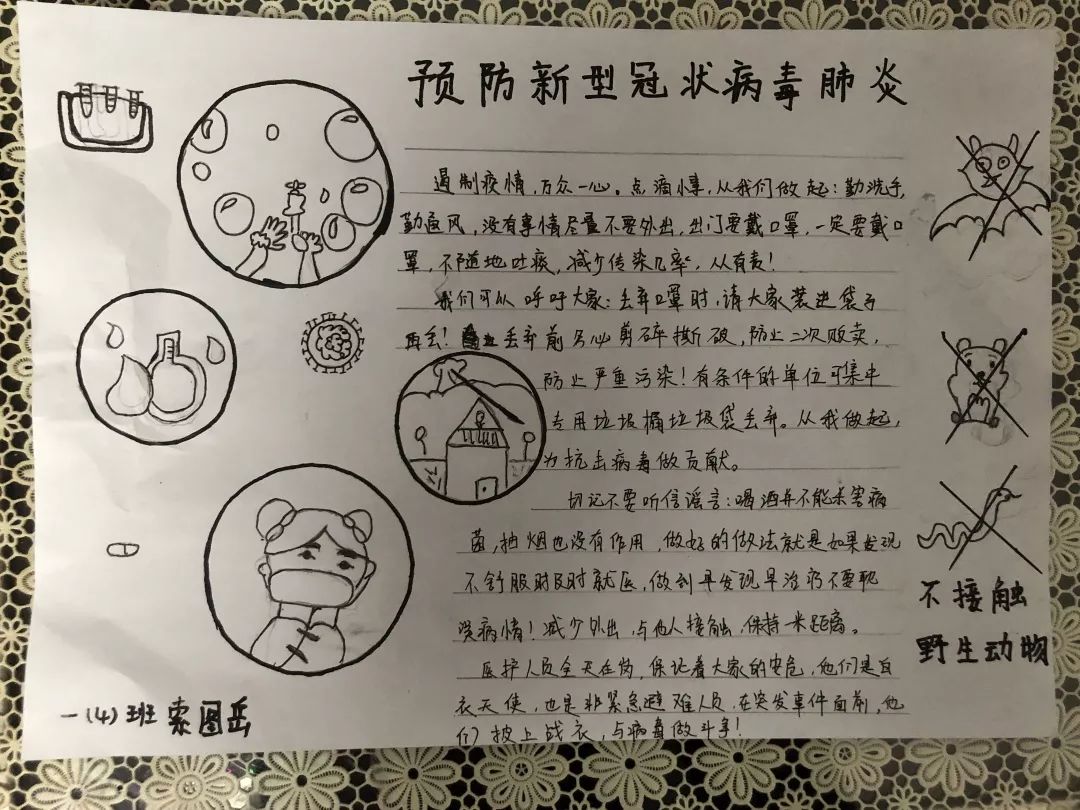 预防新型冠状病毒肺炎
遏制疫情，万众一心。点滴小事，从我们做起：勤洗手，
勤通风，没有事情尽量不要外出，出门要戴口罩，一定要戴口
罩，不随地吐痰，减少传染几率，人人有责！
我们可以呼吁大家：丢弃口罩时，请大家装进袋子
再丢！丢弃前务必剪碎撕破，防止二次贩卖，
防止严重污染！有条件的单位可集中
专用垃圾桶垃圾袋丢弃。从我做起，
为抗击病毒做贡献。
切记不要听信谣言：喝酒并不能杀害病
菌，抽烟也没有作用，做好的做法就是如果发现
不舒服时及时就医，做到早发现早治疗不要耽
误病情！减少外出，与他人接触，保持一米距离。
医护人员全天在岗，保证着大家的安危，他们是白
衣天使，也是非紧急避难人员，在突发事件面前，他
们披上战衣，与病毒做斗争！
不接触
野生动物
一(4)班 索图岳